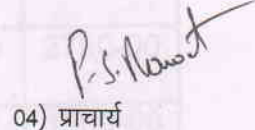 P.S. Rawat
04) प्राचार्य